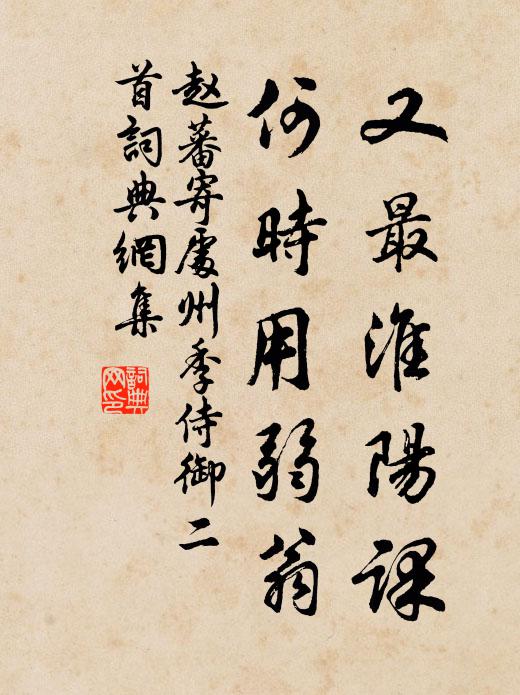 又最淮陽課
何時用弱翁
赵蕃寄處州季侍御二
首詞典網集
詞典
网印